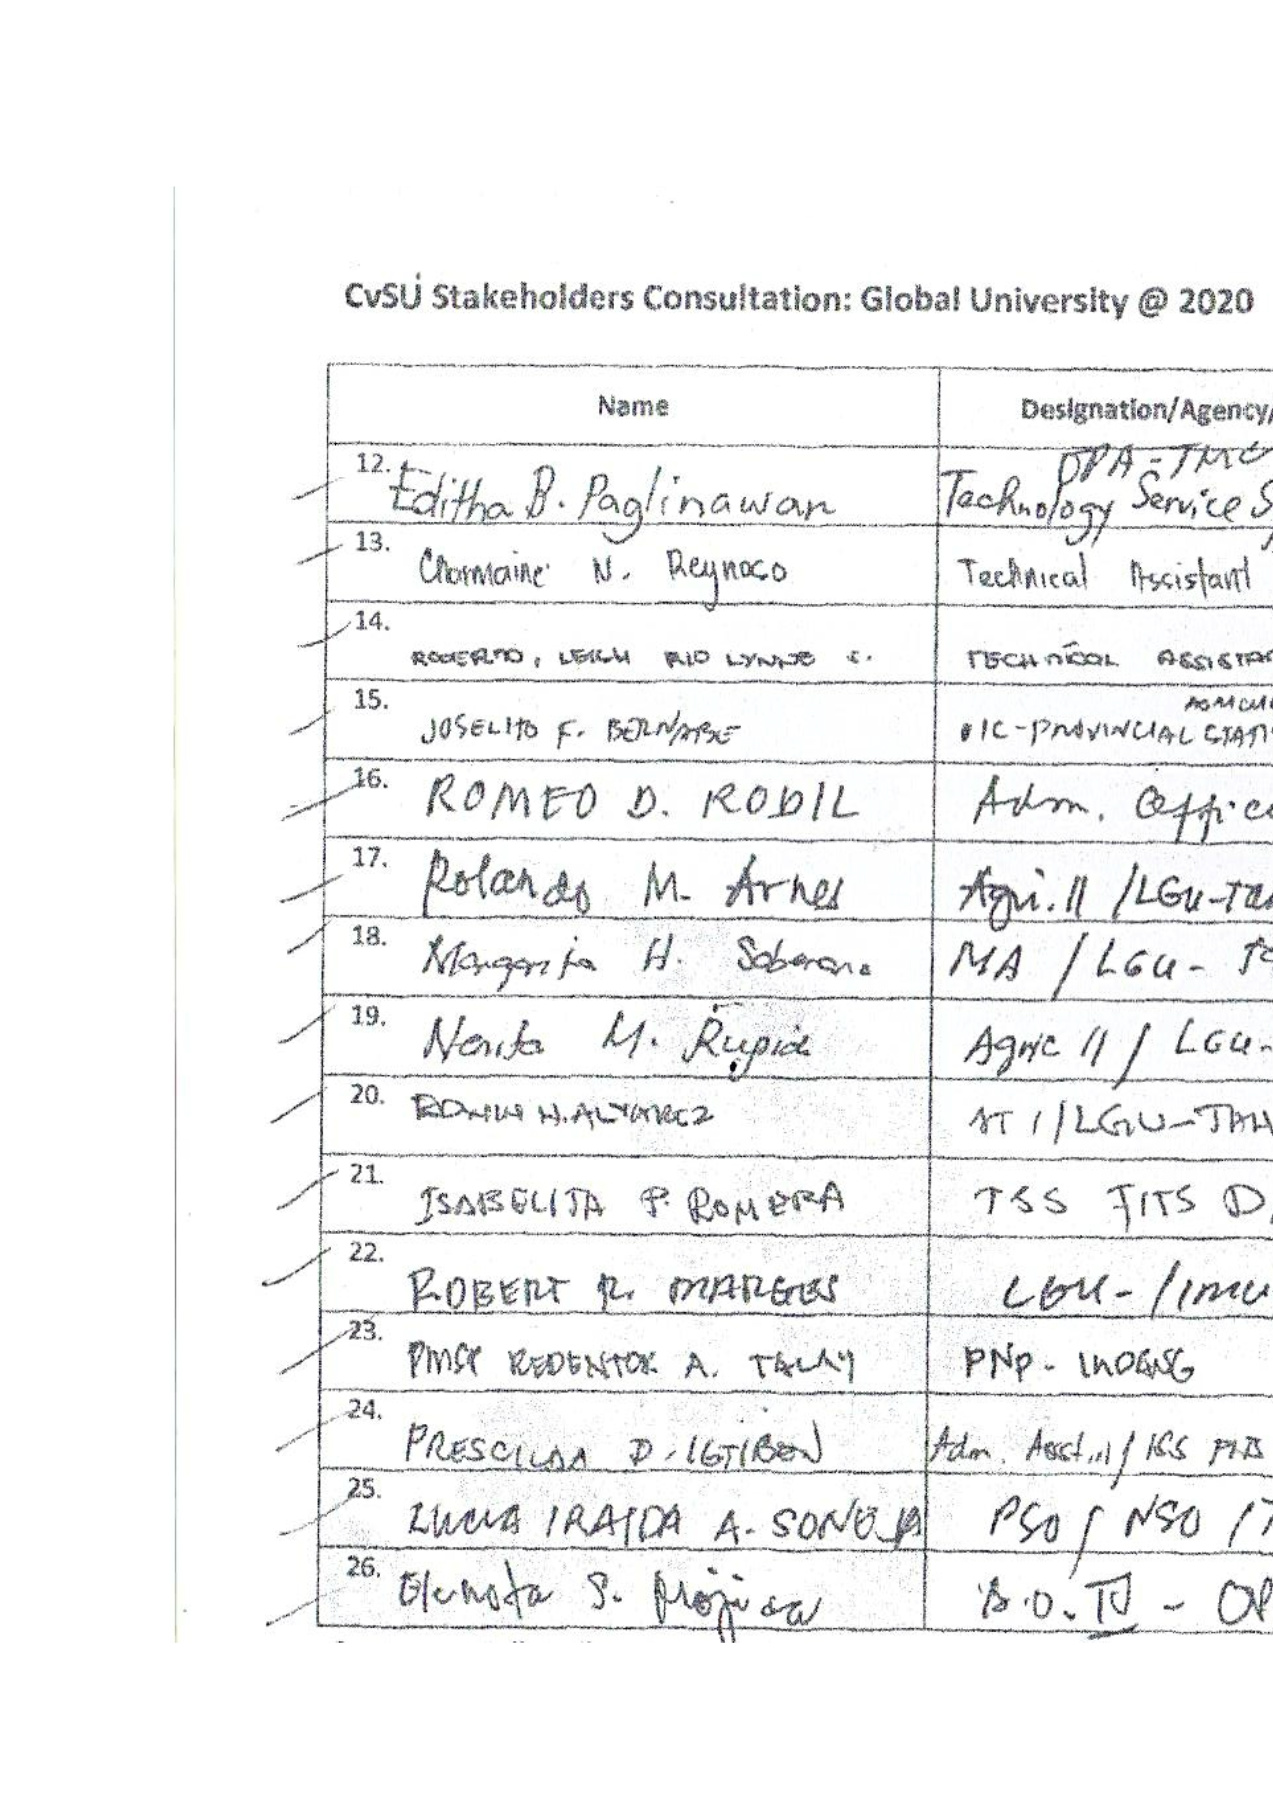 CvSU Stakeholders Consultation: Global University @ 2020
Name Designation/Agency/
OPA-TMC
12. Editha B. Paglinawan Technology Service S
13. Charmaine N. Reynoso Technical Assistant
14. ROBERTO, LEIGH RIO LYNNE C. TECHNICAL ASSISTAN
AGRICUL
15. JOSELITO F. BERNABE OIC-PROVINCIAL STATI
16. ROMEO D. RODIL Adm. Office
17. Rolando M. Arnes Agri. II /LGU-Tan
18. Margarita H. Soberano MA / LGU-
19. Nerita M. Rupido Agric II / LGU-
20. H. ALVAREZ AT I/LGU-
21. ISABELITA P. ROMERA TSS FITS D
22. ROBERT R. MARGES LGU-/IMU
23. REDENTOR A. PNP- INDANG
24. PRESCILLA D. IGTIBEN Adm. Asst. II / TSS FITS
25. IRAIDA A. SONEJA PSO / NSO /
26. Elenota S. Mojica B.O. IV - OP